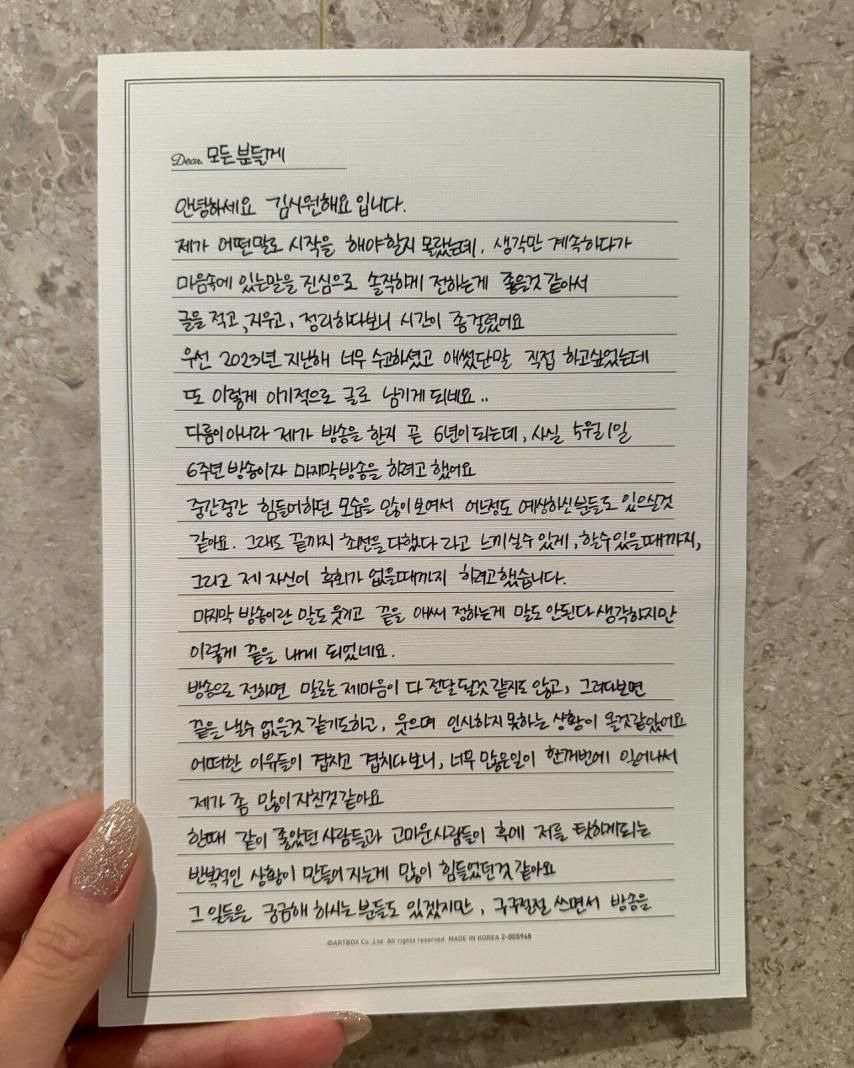 Dear. 모든 분들께
안녕하세요 김시원해요 입니다.
제가 어떤말로 시작을 해야할지 몰랐는데, 생각만 계속하다가
마음속에 있는말을 진심으로 솔직하게 전하는게 좋을것 같아서
글을 적고, 지우고, 정리하다보니 시간이 좀 걸렸어요
우선 2023년 지난해 너무 수고하셨고 애썼단말 직접 하고싶었는데
또 이렇게 이기적으로 글로 남기게 되네요..
다름이아니라 제가 방송을 한지 곧 6년이되는데, 사실 5월1일
6주년 방송이자 마지막방송을 하려고 했어요
중간중간 힘들어하던 모습을 많이보여서 어느정도 예상하신분들도 있으실것
같아요. 그래도 끝까지 최선을 다했다 라고 느끼실수 있게, 할수있을때까지,
그리고 제 자신이 후회가 없을때까지 하려고했습니다.
마지막 방송이란 말도 웃기고 끝을 애써 정하는게 말도 안된다 생각하지만
이렇게 끝을 내게 되었네요.
방송으로 전하면 말로는 제마음이 다 전달될것 같지도 않고, 그러다보면
끝을 낼수 없을것 같기도하고, 웃으며 인사하지 못하는 상황이 올것같았어요
어떠한 이유들이 겹치고 겹치다보니, 너무 많은일이 한꺼번에 일어나서
제가 좀 많이 지친것같아요
한때 같이 좋았던 사람들과 고마운사람들이 후에 저를 탓하게되는
반복적인 상황이 만들어 지는게 많이 힘들었던것 같아요
그 일들을 궁금해 하시는 분들도 있겠지만, 구구절절 쓰면서 방송을
©ARTBOX Co.,Ltd. All rights reserved. MADE IN KOREA 2-005948